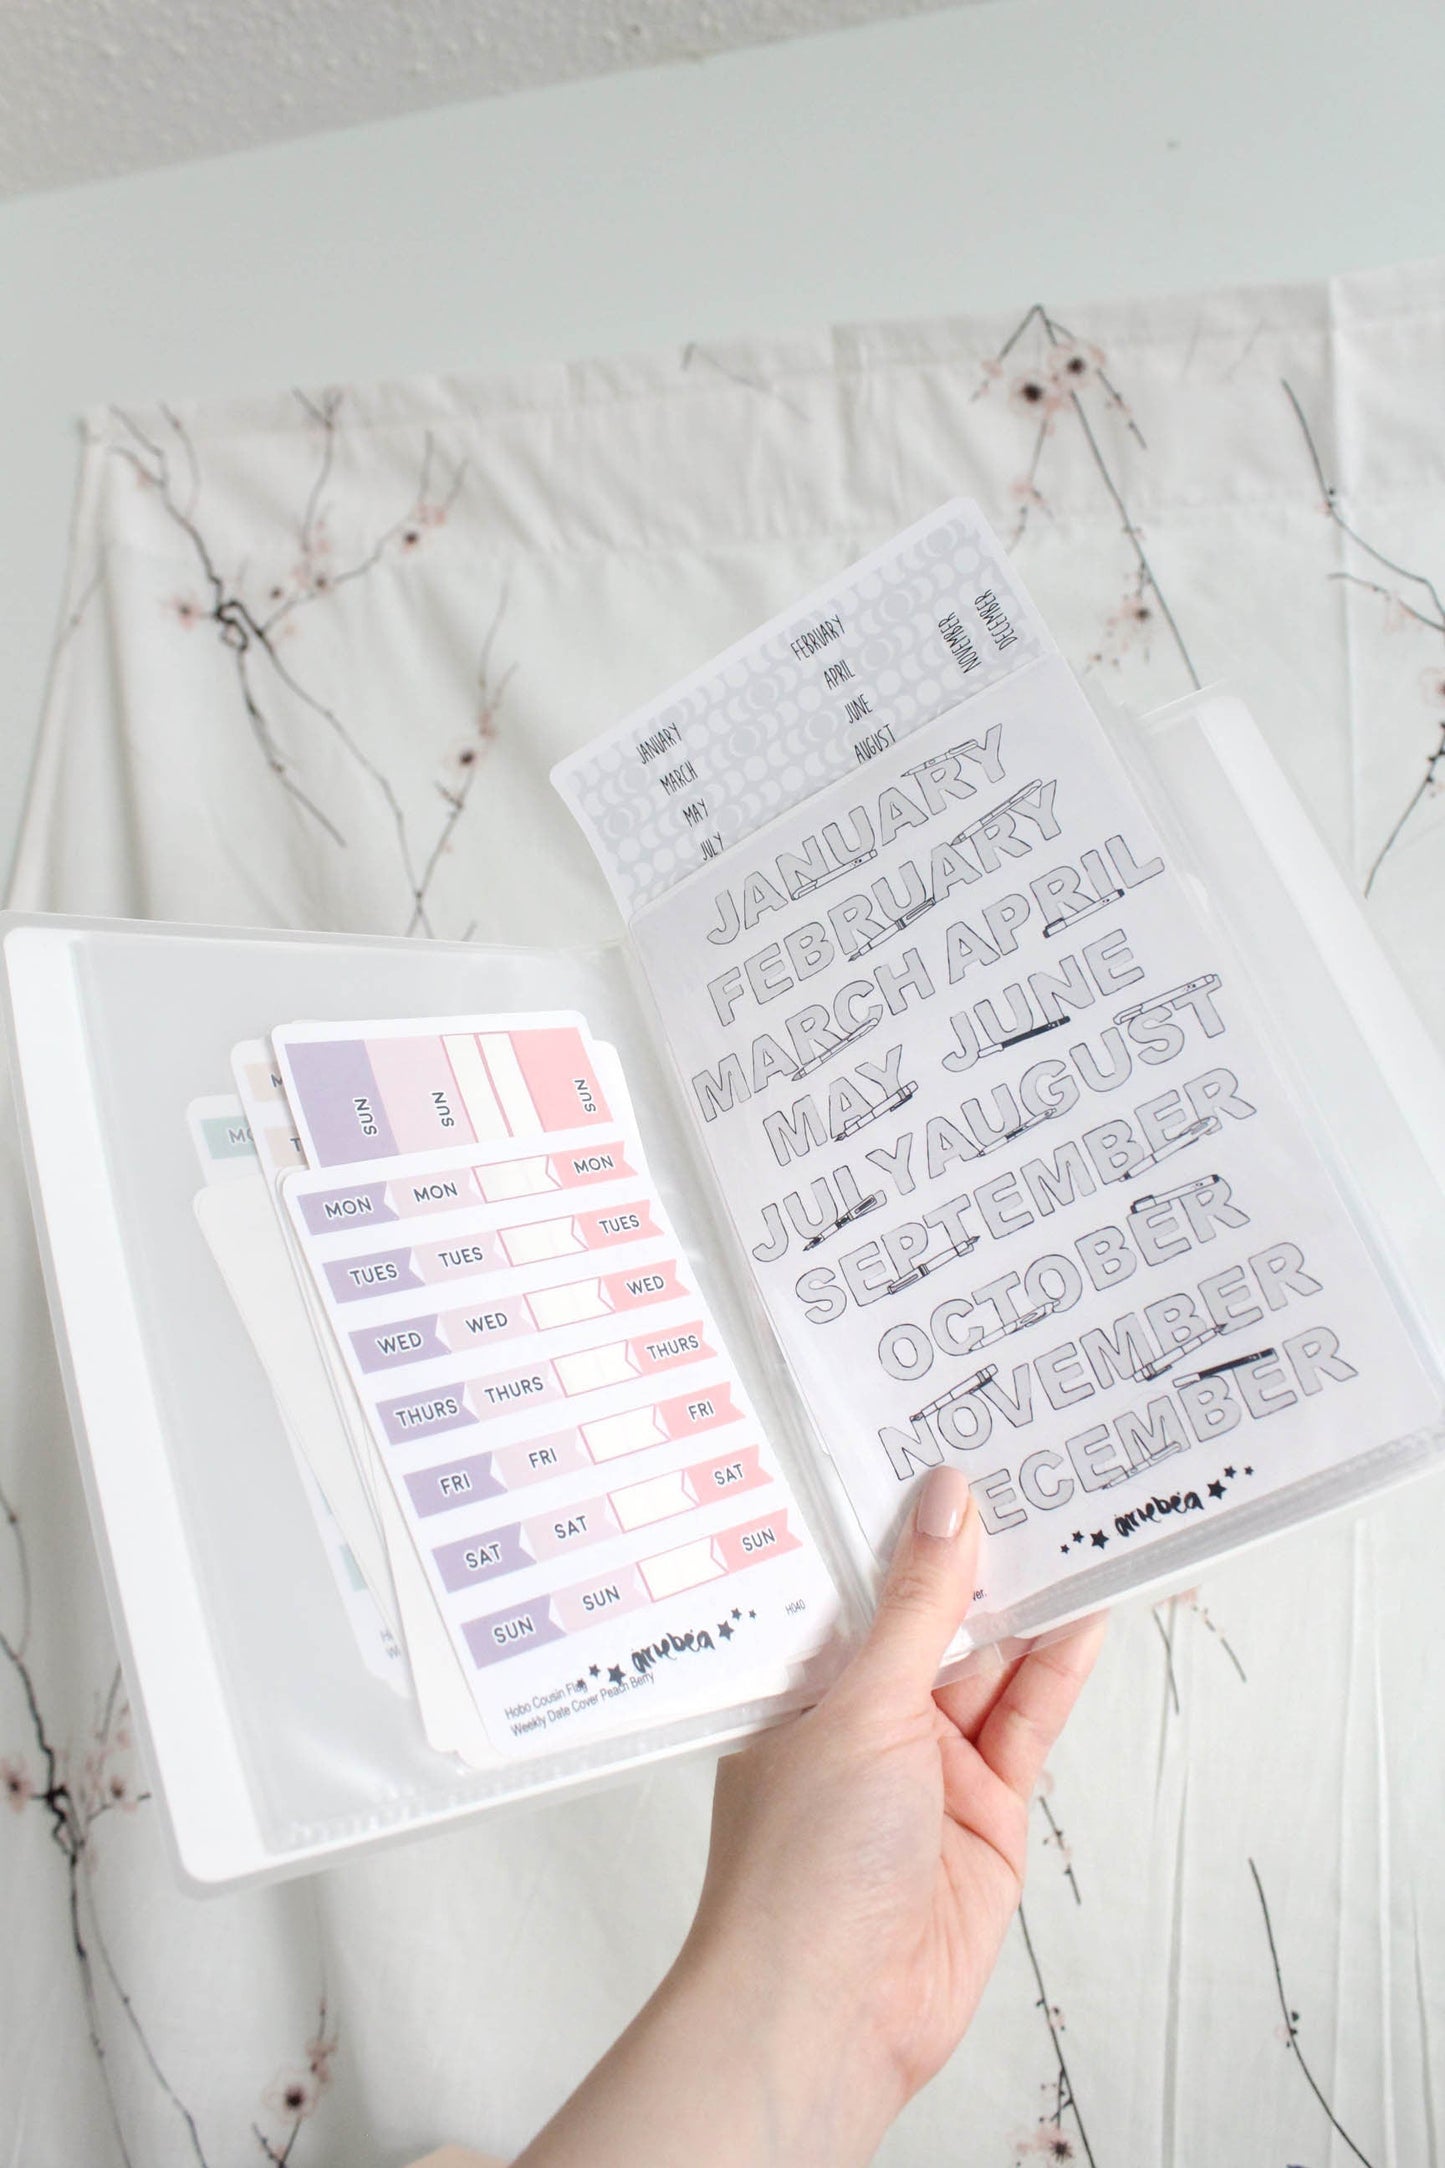 SUN SUN SUN
MON MON MON
TUES TUES TUES
WED WED WED
THURS THURS THURS
FRI FRI FRI
SAT SAT SAT
SUN SUN SUN
H040
artebea
Hobo Cousin Flag
Weekly Date Cover Peach Berry
JANUARY FEBRUARY
MARCH APRIL
MAY JUNE
JULY AUGUST
NOVEMBER
DECEMBER
JANUARY
FEBRUARY
MARCH APRIL
MAY JUNE
JULY AUGUST
SEPTEMBER
OCTOBER
NOVEMBER
ECEMBER
artebea